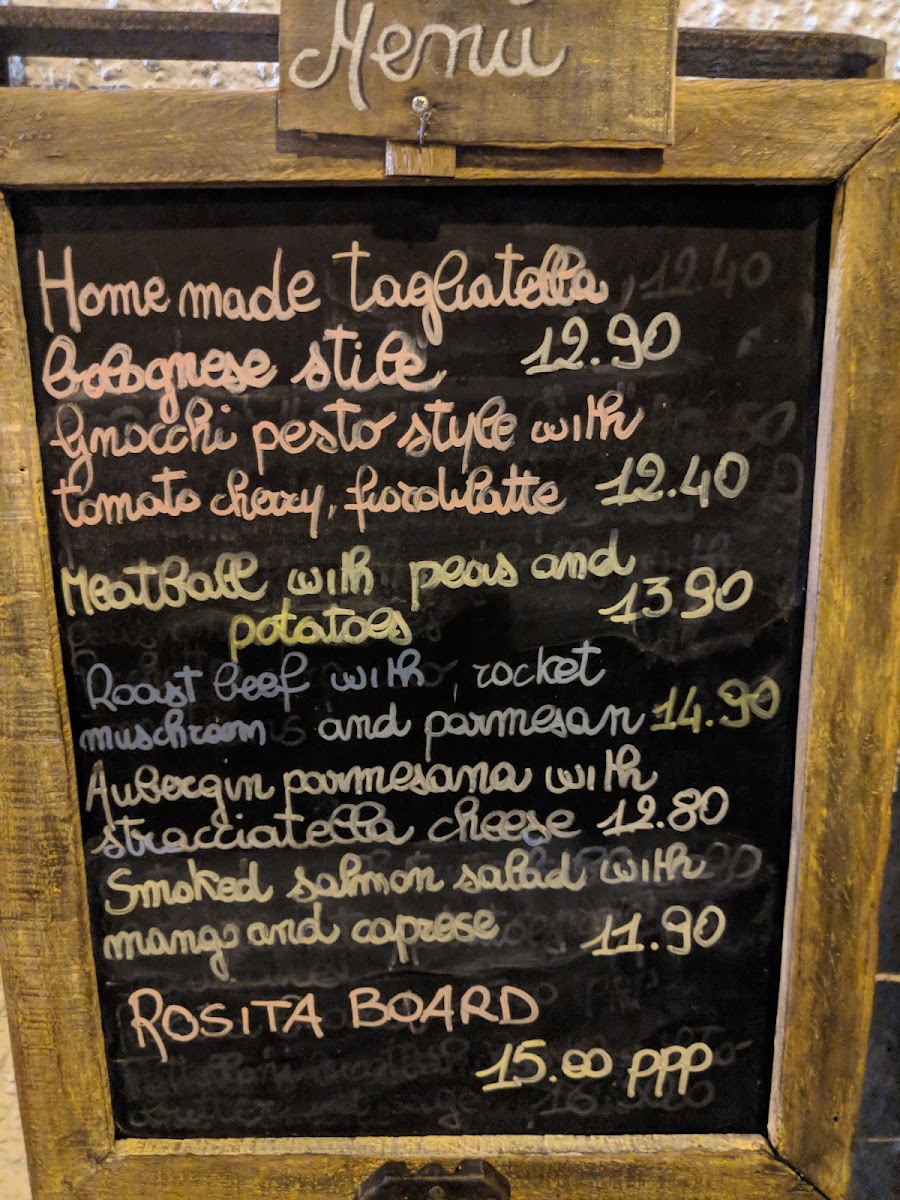 Menú
Home made tagliatella
bolognese stile 12.90
Gnocchi pesto style with
tomato cherry, fiordilatte 12.40
Meatball with peas and
potatoes 13.90
Roast beef with, rocket
muschroom and parmesan 14.90
Aubergin parmesana with
stracciatella cheese 12.80
Smoked salmon salad with
mango and caprese 11.90
ROSITA BOARD
15.00 ppp